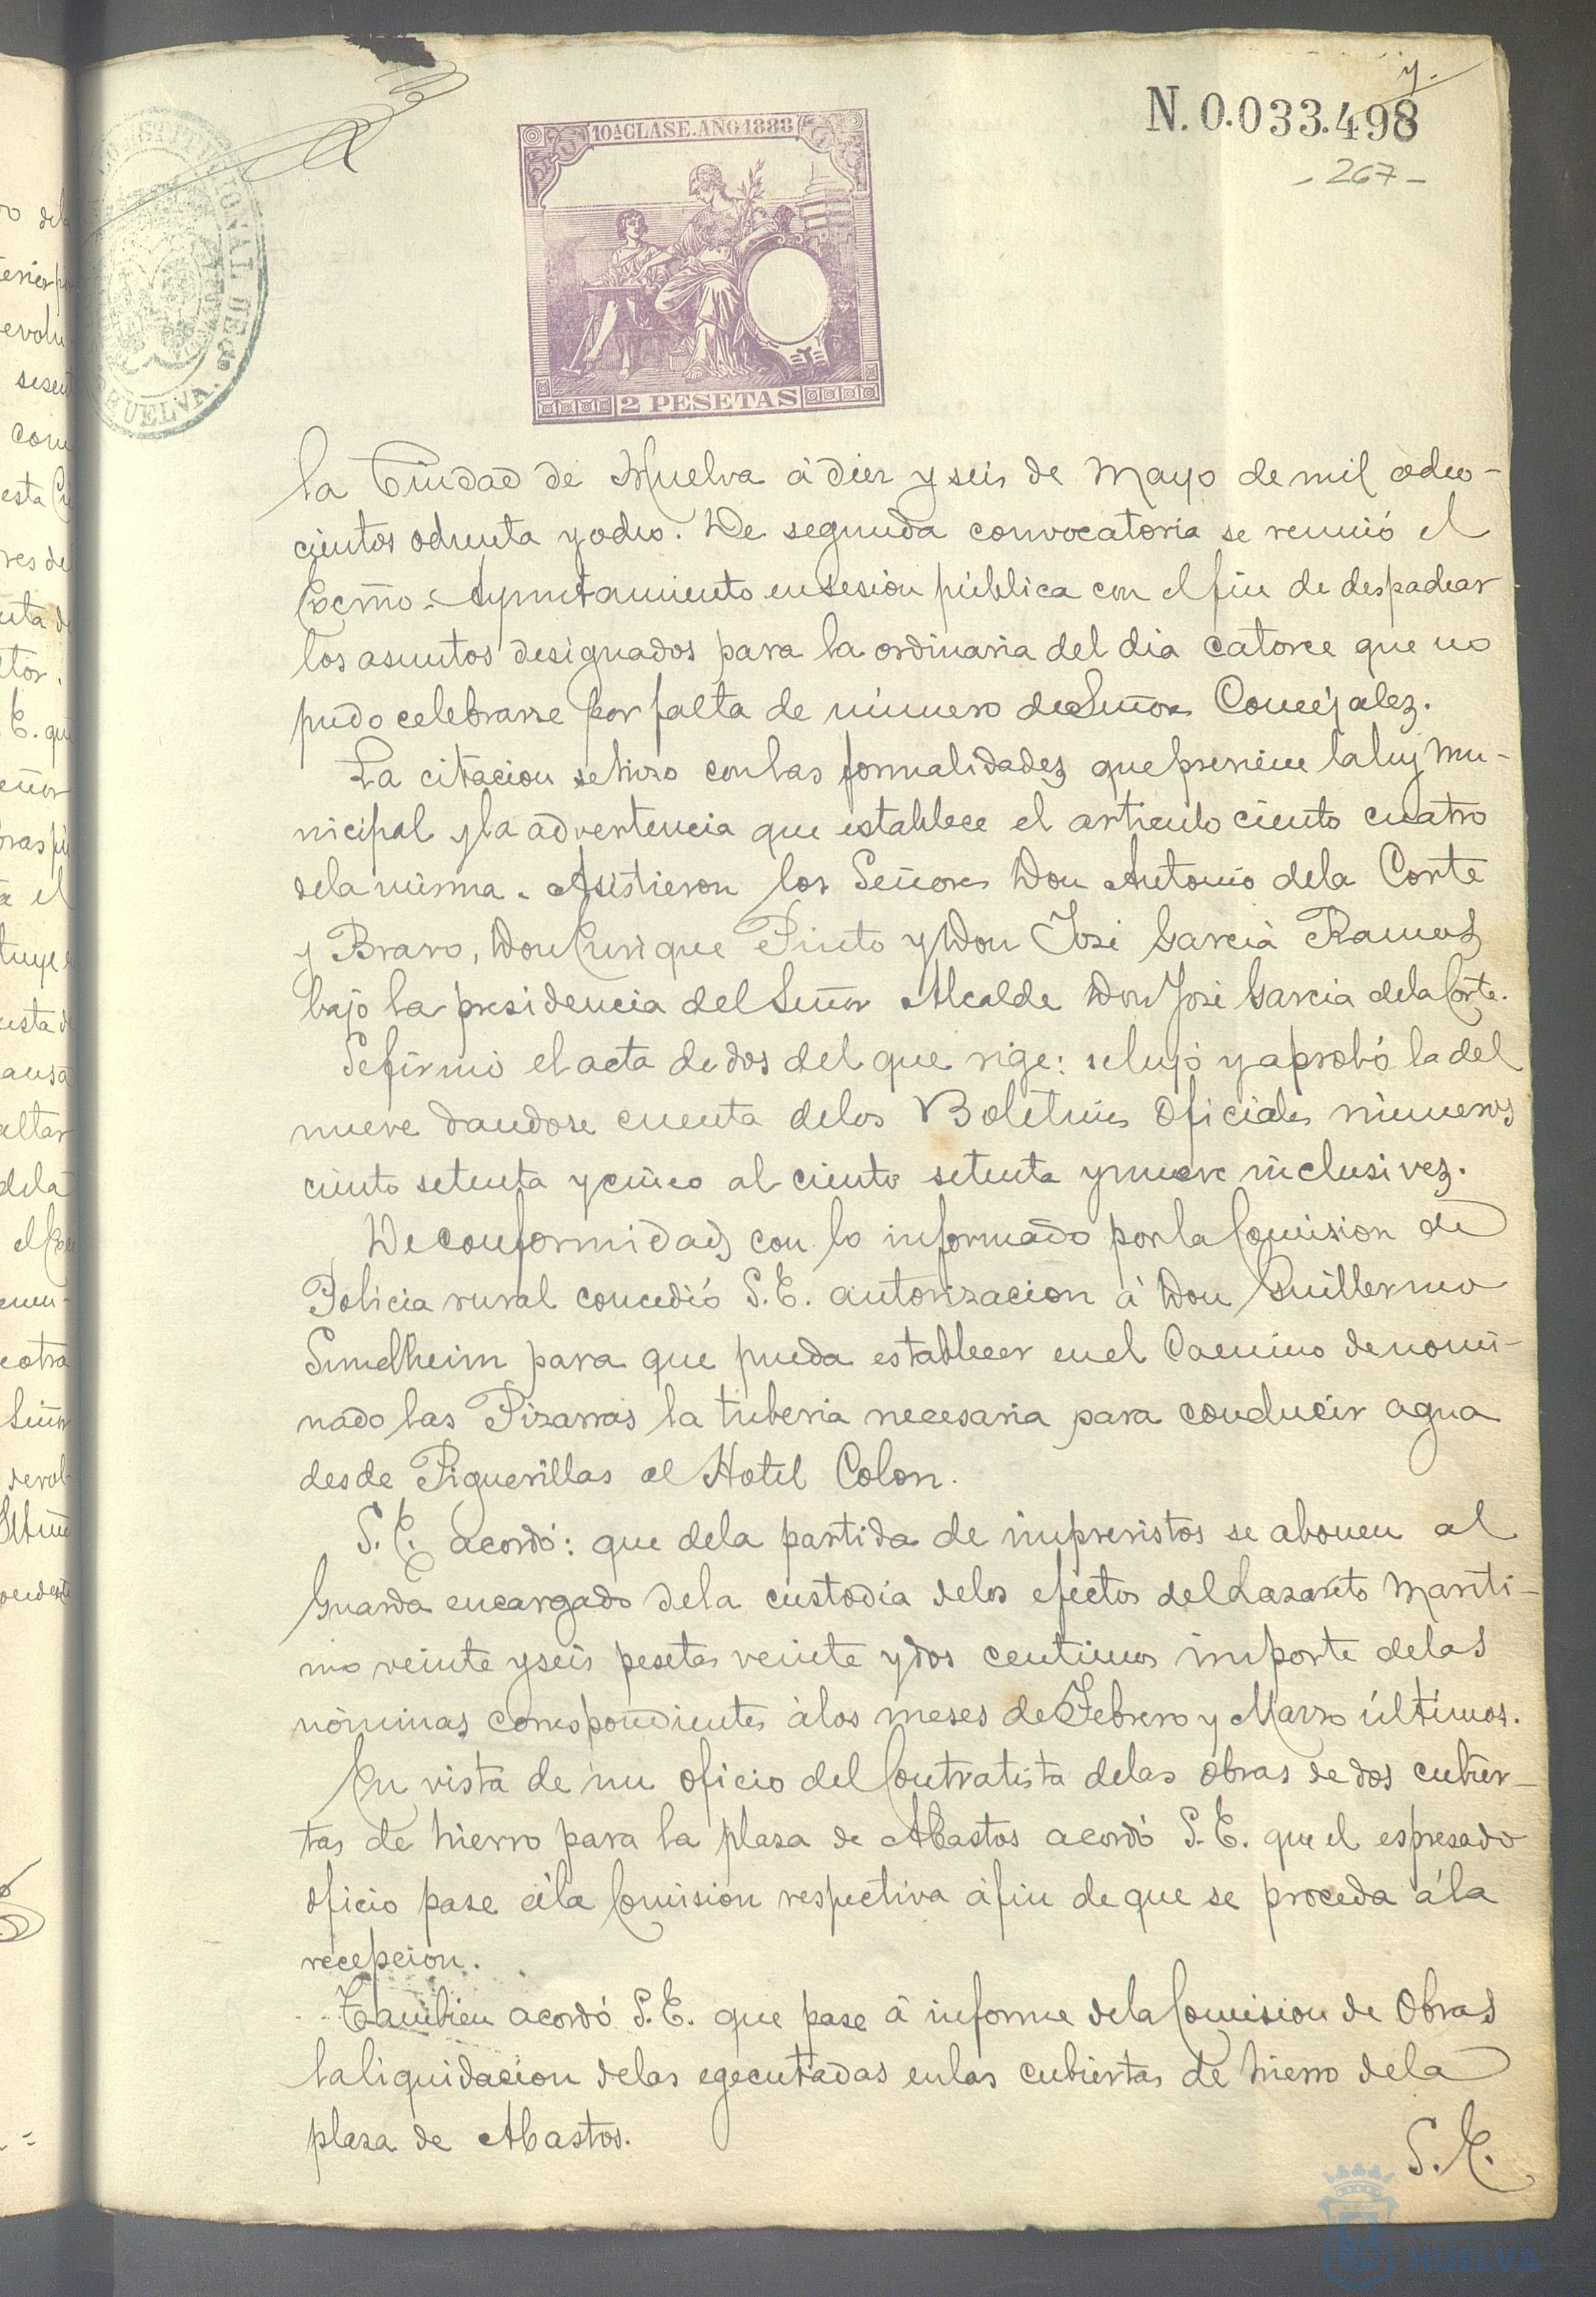 y.
N. 0.033.498
- 267 -
10ª CLASE. AÑO 1888
2 PESETAS
CONSTITUCIONAL DE
HUELVA.
la Ciudad de Huelva á diez y seis de Mayo de mil ocho-
cientos ochenta y ocho. De segunda convocatoria se reunió el
Excmo. Ayuntamiento en sesion pública con el fin de despachar
los asuntos designados para la ordinaria del dia catorce que no
pudo celebrarse por falta de número de Señores Concejales.
La citacion se hizo con las formalidades que previene la ley Mu-
nicipal y la advertencia que establece el articulo ciento cuatro
de la misma. Asistieron los Señores Don Antonio de la Corte
y Bravo, Don Enrique Pinto y Don José Garcia Ramos
bajo la presidencia del Señor Alcalde Don José Garcia de la Corte.
Se firmó el acta de dos del que rige: se leyó y aprobó la del
nueve dandose cuenta de los Boletines Oficiales números
ciento setenta y cinco al ciento setenta y nueve inclusives.
De conformidad con lo informado por la Comision de
Policia rural concedió S. E. autorizacion á Don Guillermo
Sundheim para que pueda establecer en el Camino denomi-
nado las Pizarras la tuberia necesaria para conducir agua
desde Piguerillas al Hotel Colon.
S. E. acordó: que de la partida de imprevistos se abonen al
Guarda encargado de la custodia de los efectos del Lazareto Maríti-
mo veinte y seis pesetas veinte y dos centimos importe de las
nóminas correspondientes á los meses de Febrero y Marzo últimos.
En vista de un oficio del Contratista de las obras de dos cubier-
tas de hierro para la plaza de Abastos acordó S. E. que el espresado
oficio pase á la Comision respectiva á fin de que se proceda á la
recepcion.
Tambien acordó S. E. que pase á informe de la Comision de Obras
la liquidacion de las egecutadas en las cubiertas de hierro de la
plaza de Abastos.
S. E.
HUELVA